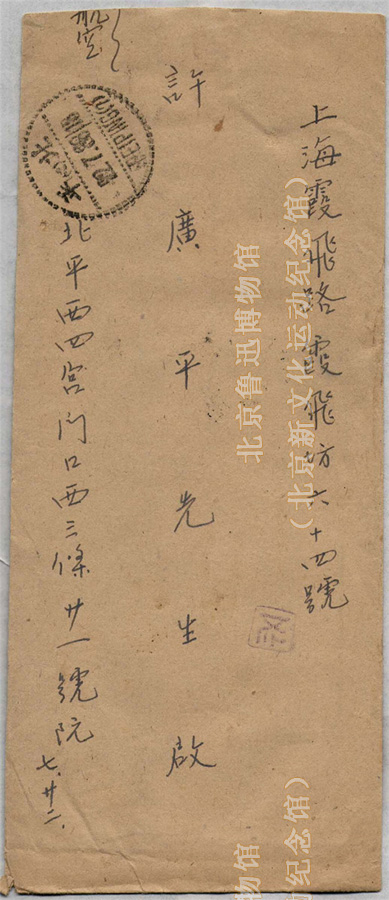 上海霞飛路霞飛坊六十四號
許廣平先生啟
北平西四宮门口西三條廿一號院
七.廿二.
航空
北平
PEIPING
北京鲁迅博物馆
（北京新文化运动纪念馆）
博物馆
动纪念馆）